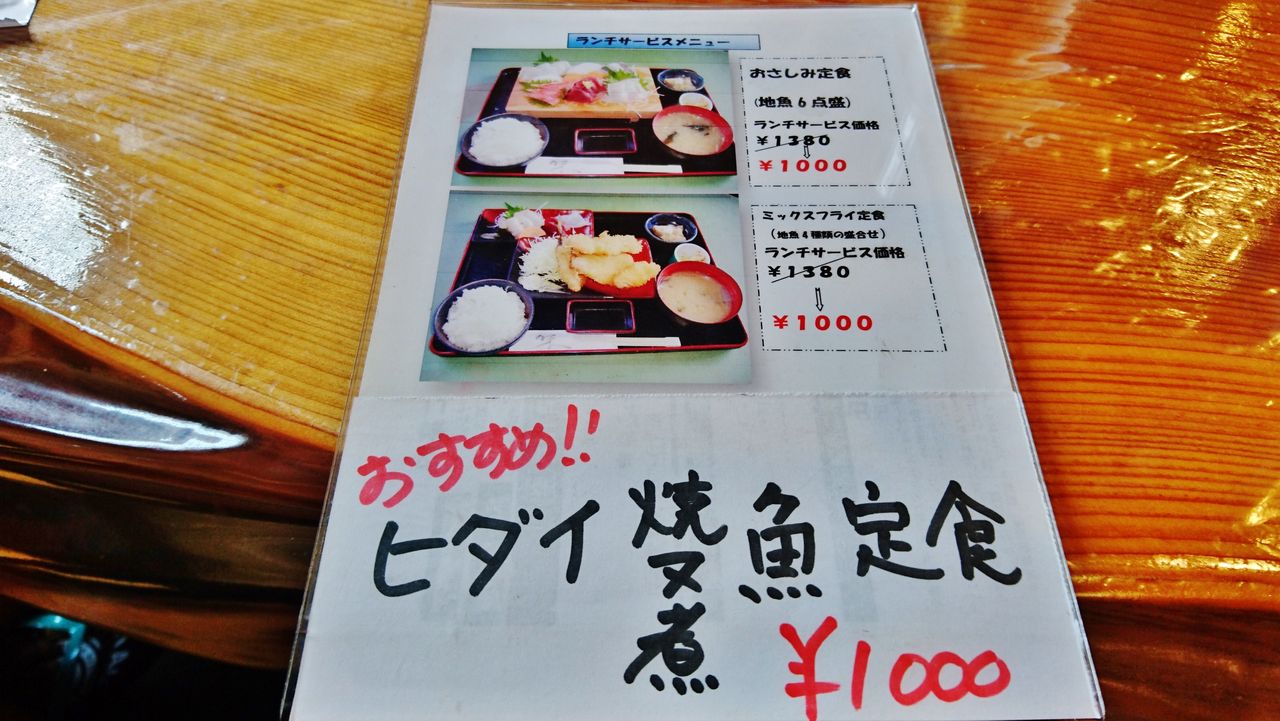 ランチサービスメニュー
おさしみ定食
(地魚6点盛)
ランチサービス価格
¥1380
⇩
¥1000
ミックスフライ定食
(地魚4種類の盛合せ)
ランチサービス価格
¥1380
⇩
¥1000
おすすめ!!
ヒダイ焼又煮魚定食
¥1000